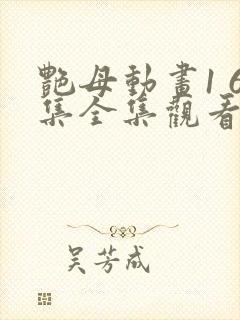 艷母動畫16
集全集觀看
吴芳成